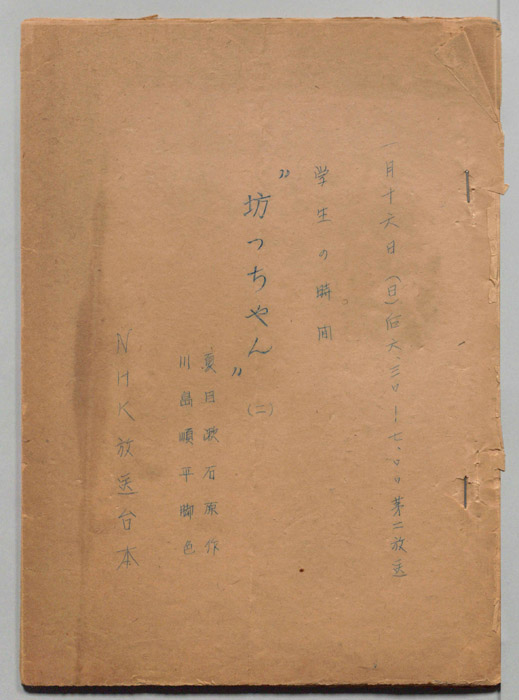 一月十六日（日）后六、三〇ー七、〇〇第二放送
学生の時間
〝坊っちやん〟（二）
夏目漱石原作
川島順平脚色
NHK放送台本